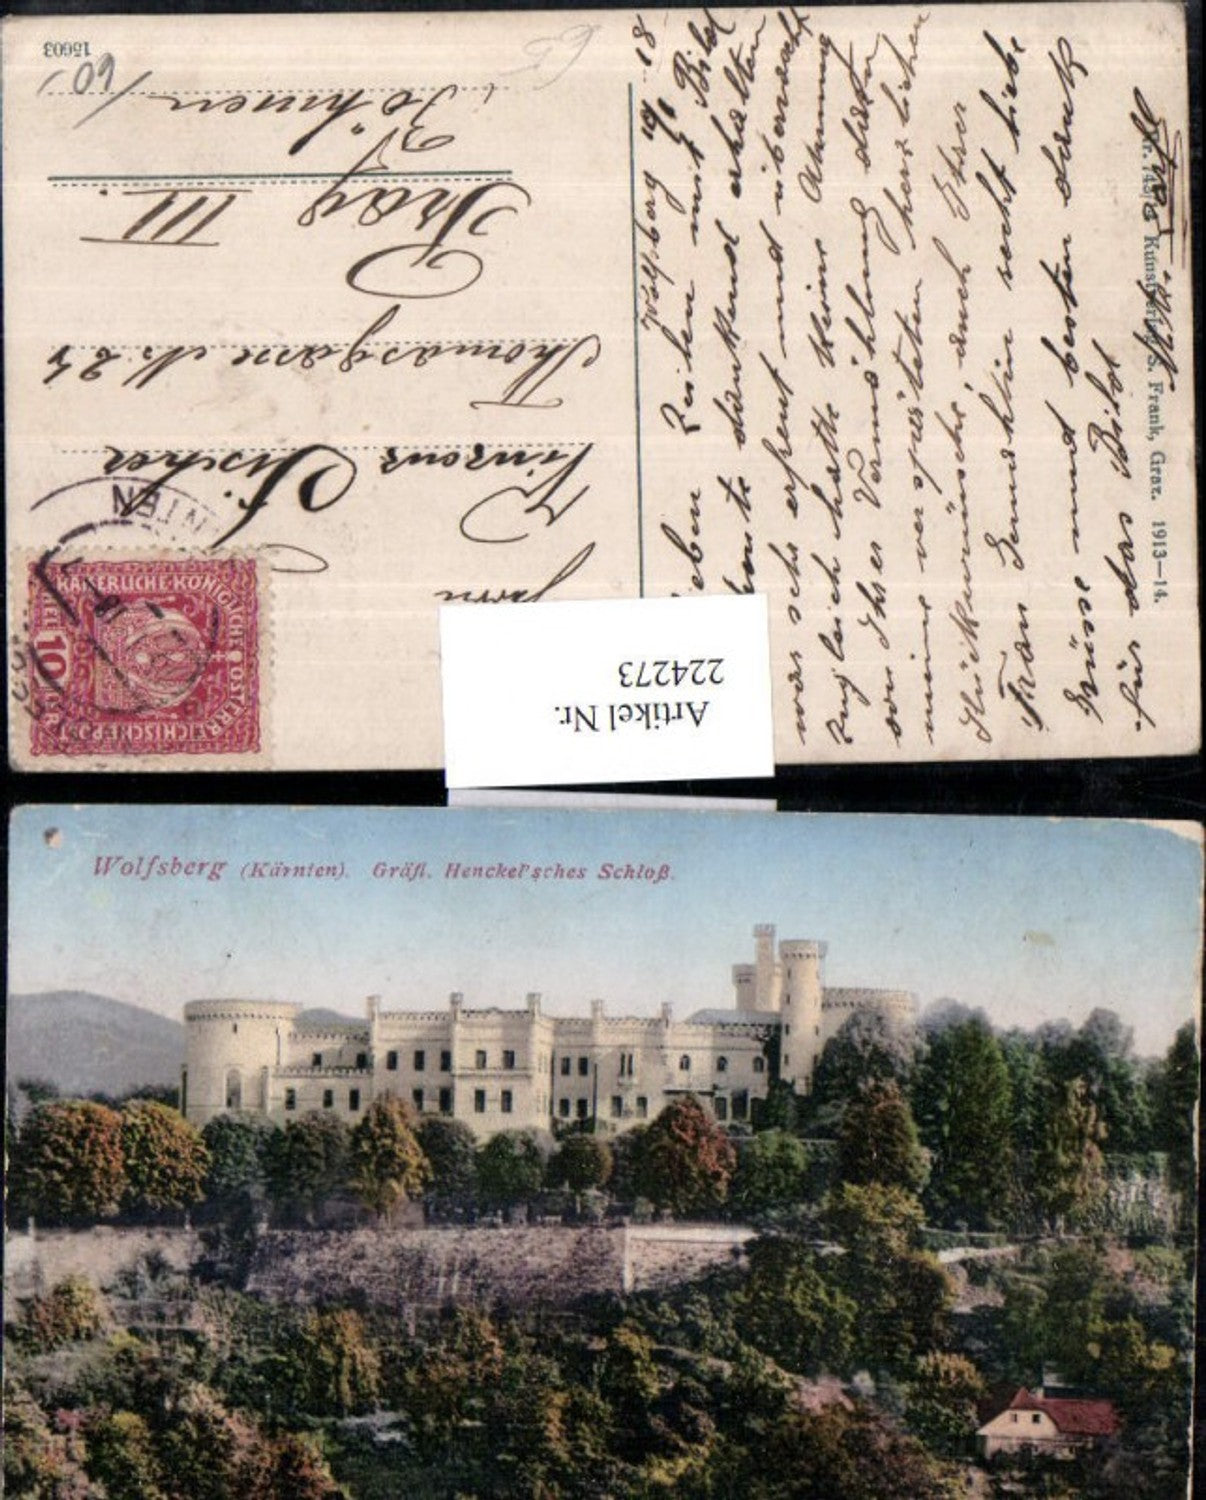 Wolfsberg 10/10 18
lieben Zeilen mit Bild
heute dankend erhalten
was ich erfreut und überrascht
zugleich hatte keine Ahnung
von Ihrer Vermählung daher
meine verspäteten herzlichen
Glückwünsche, auch Ihrer
Frau Gemahlin recht liebe
Grüsse und besten Dank
für das Bild
Nr. Kunstverlag S. Frank, Graz. 1913—14.
Herrn
Vinzenz Fischer
Thomasgasse N. 24
Prag III.
Böhmen
15603
60
KAISERLICHE KÖNIGLICHE ÖSTERREICHISCHE POST
10
Artikel Nr.
224273
Wolfsberg (Kärnten). Gräfl. Henckel'sches Schloß.